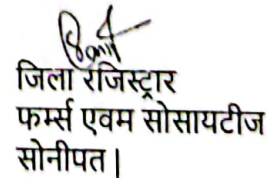 जिला रजिस्ट्रार
फर्म्स एवम सोसायटीज
सोनीपत।